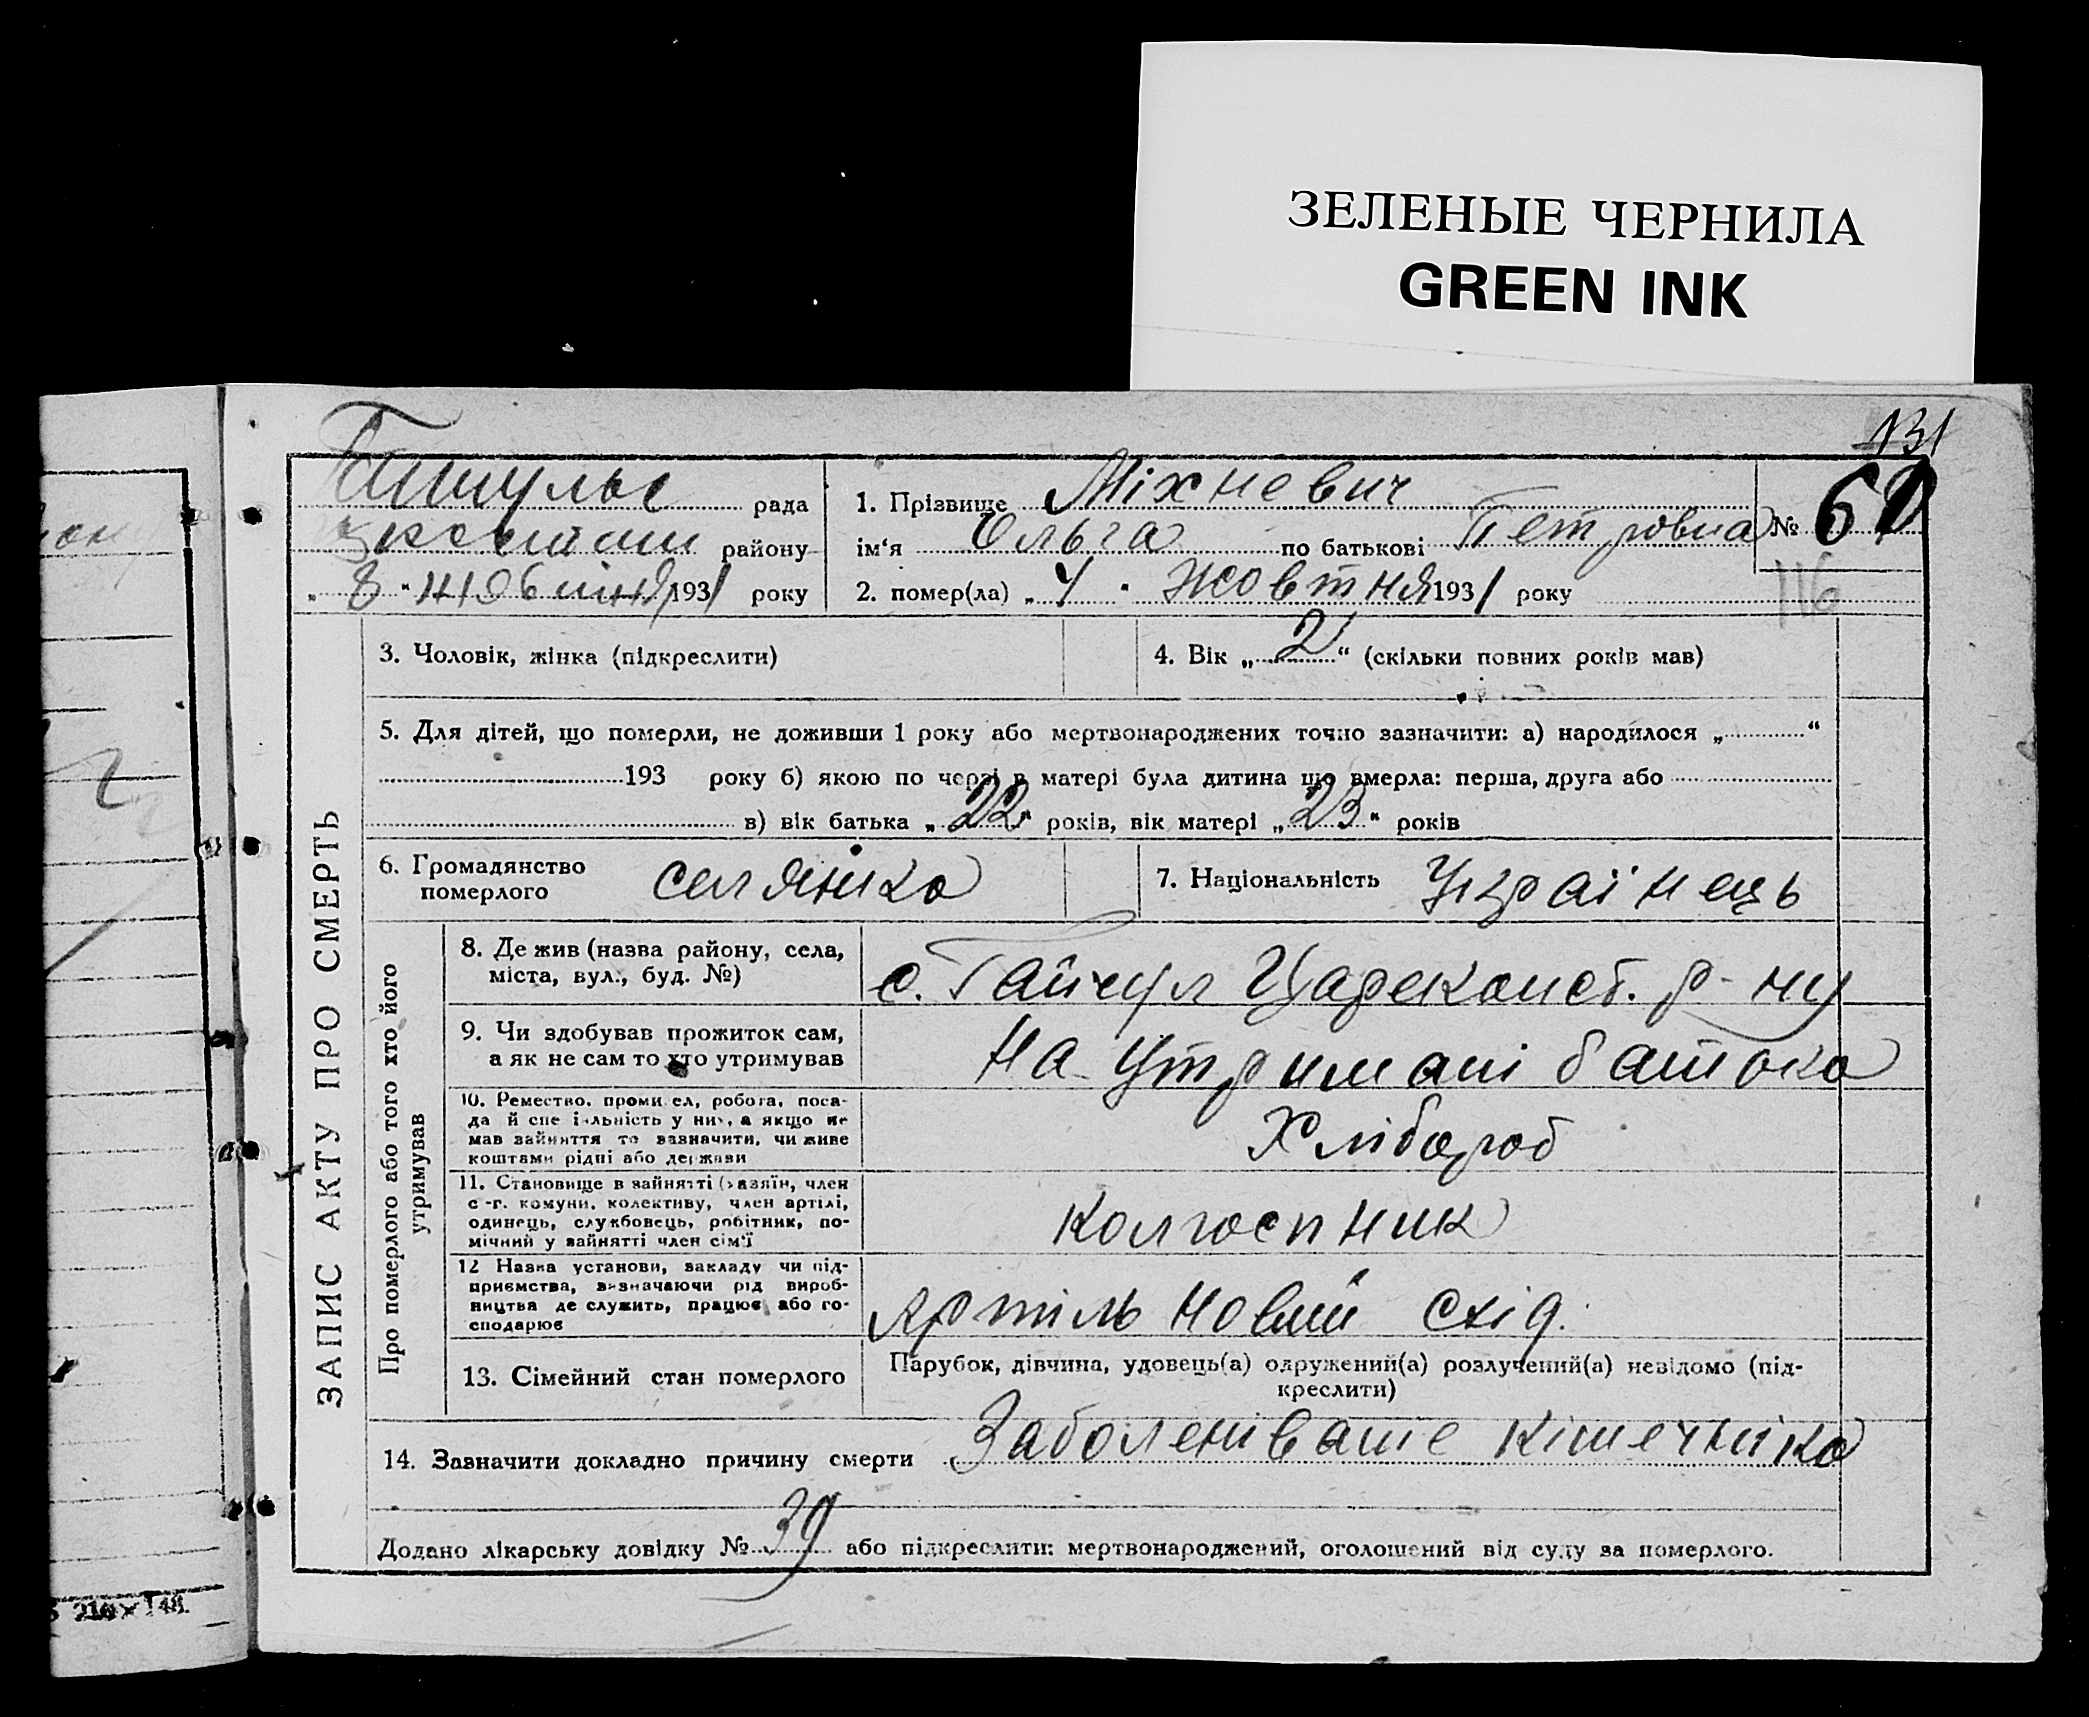 ЗЕЛЕНЫЕ ЧЕРНИЛА
GREEN INK
131
рада
району
„ 8 “ жовтня 1931 року
1. Прізвище Міхневич
ім‘я Ольга по батькові Петровна
№ 60
2. помер(ла) „ 4 “ жовтня 1931 року
116
ЗАПИС АКТУ ПРО СМЕРТЬ
3. Чоловік, жінка (підкреслити)
4. Вік „ 2 “ (скільки повних років мав)
5. Для дітей, що померли, не доживши 1 року або мертвонароджених точно зазначити: а) народилося „ “
193 року б) якою по черзі в матері була дитина що вмерла: перша, друга або
в) вік батька „ 22 “ років, вік матері „ 23 “ років
6. Громадянство померлого селянка
7. Національність Українець
Про померлого або того хто його утримував
8. Де жив (назва району, села,
міста, вул., буд. №)
с. Гайчул Цареконст. р-ну
9. Чи здобував прожиток сам,
а як не сам то хто утримував
На утримані батька
10. Ремество, промисел, робота, поса-
да й спеціяльність у них, а якщо не
мав зайняття то зазначити, чи живе
коштами рідні або держави
Хлібороб
11. Становище в зайнятті (хазяїн, член
с.-г. комуни, колективу, член артілі,
одинець, службовець, робітник, по-
мічний у зайнятті член сім‘ї
колгоспник
12 Назва установи, закладу чи під-
приємства, визначаючи рід вироб-
ництва де служить, працює або го-
сподарює
Артіль Новий Схід.
13. Сімейний стан померлого
Парубок, дівчина, удовець(а) одружений(а) розлучений(а) невідомо (під-
креслити)
14. Зазначити докладно причину смерти Заболеніваніе кішечніка
Додано лікарську довідку № 39 або підкреслити: мертвонароджений, оголошений від суду за померлого.
210×148.